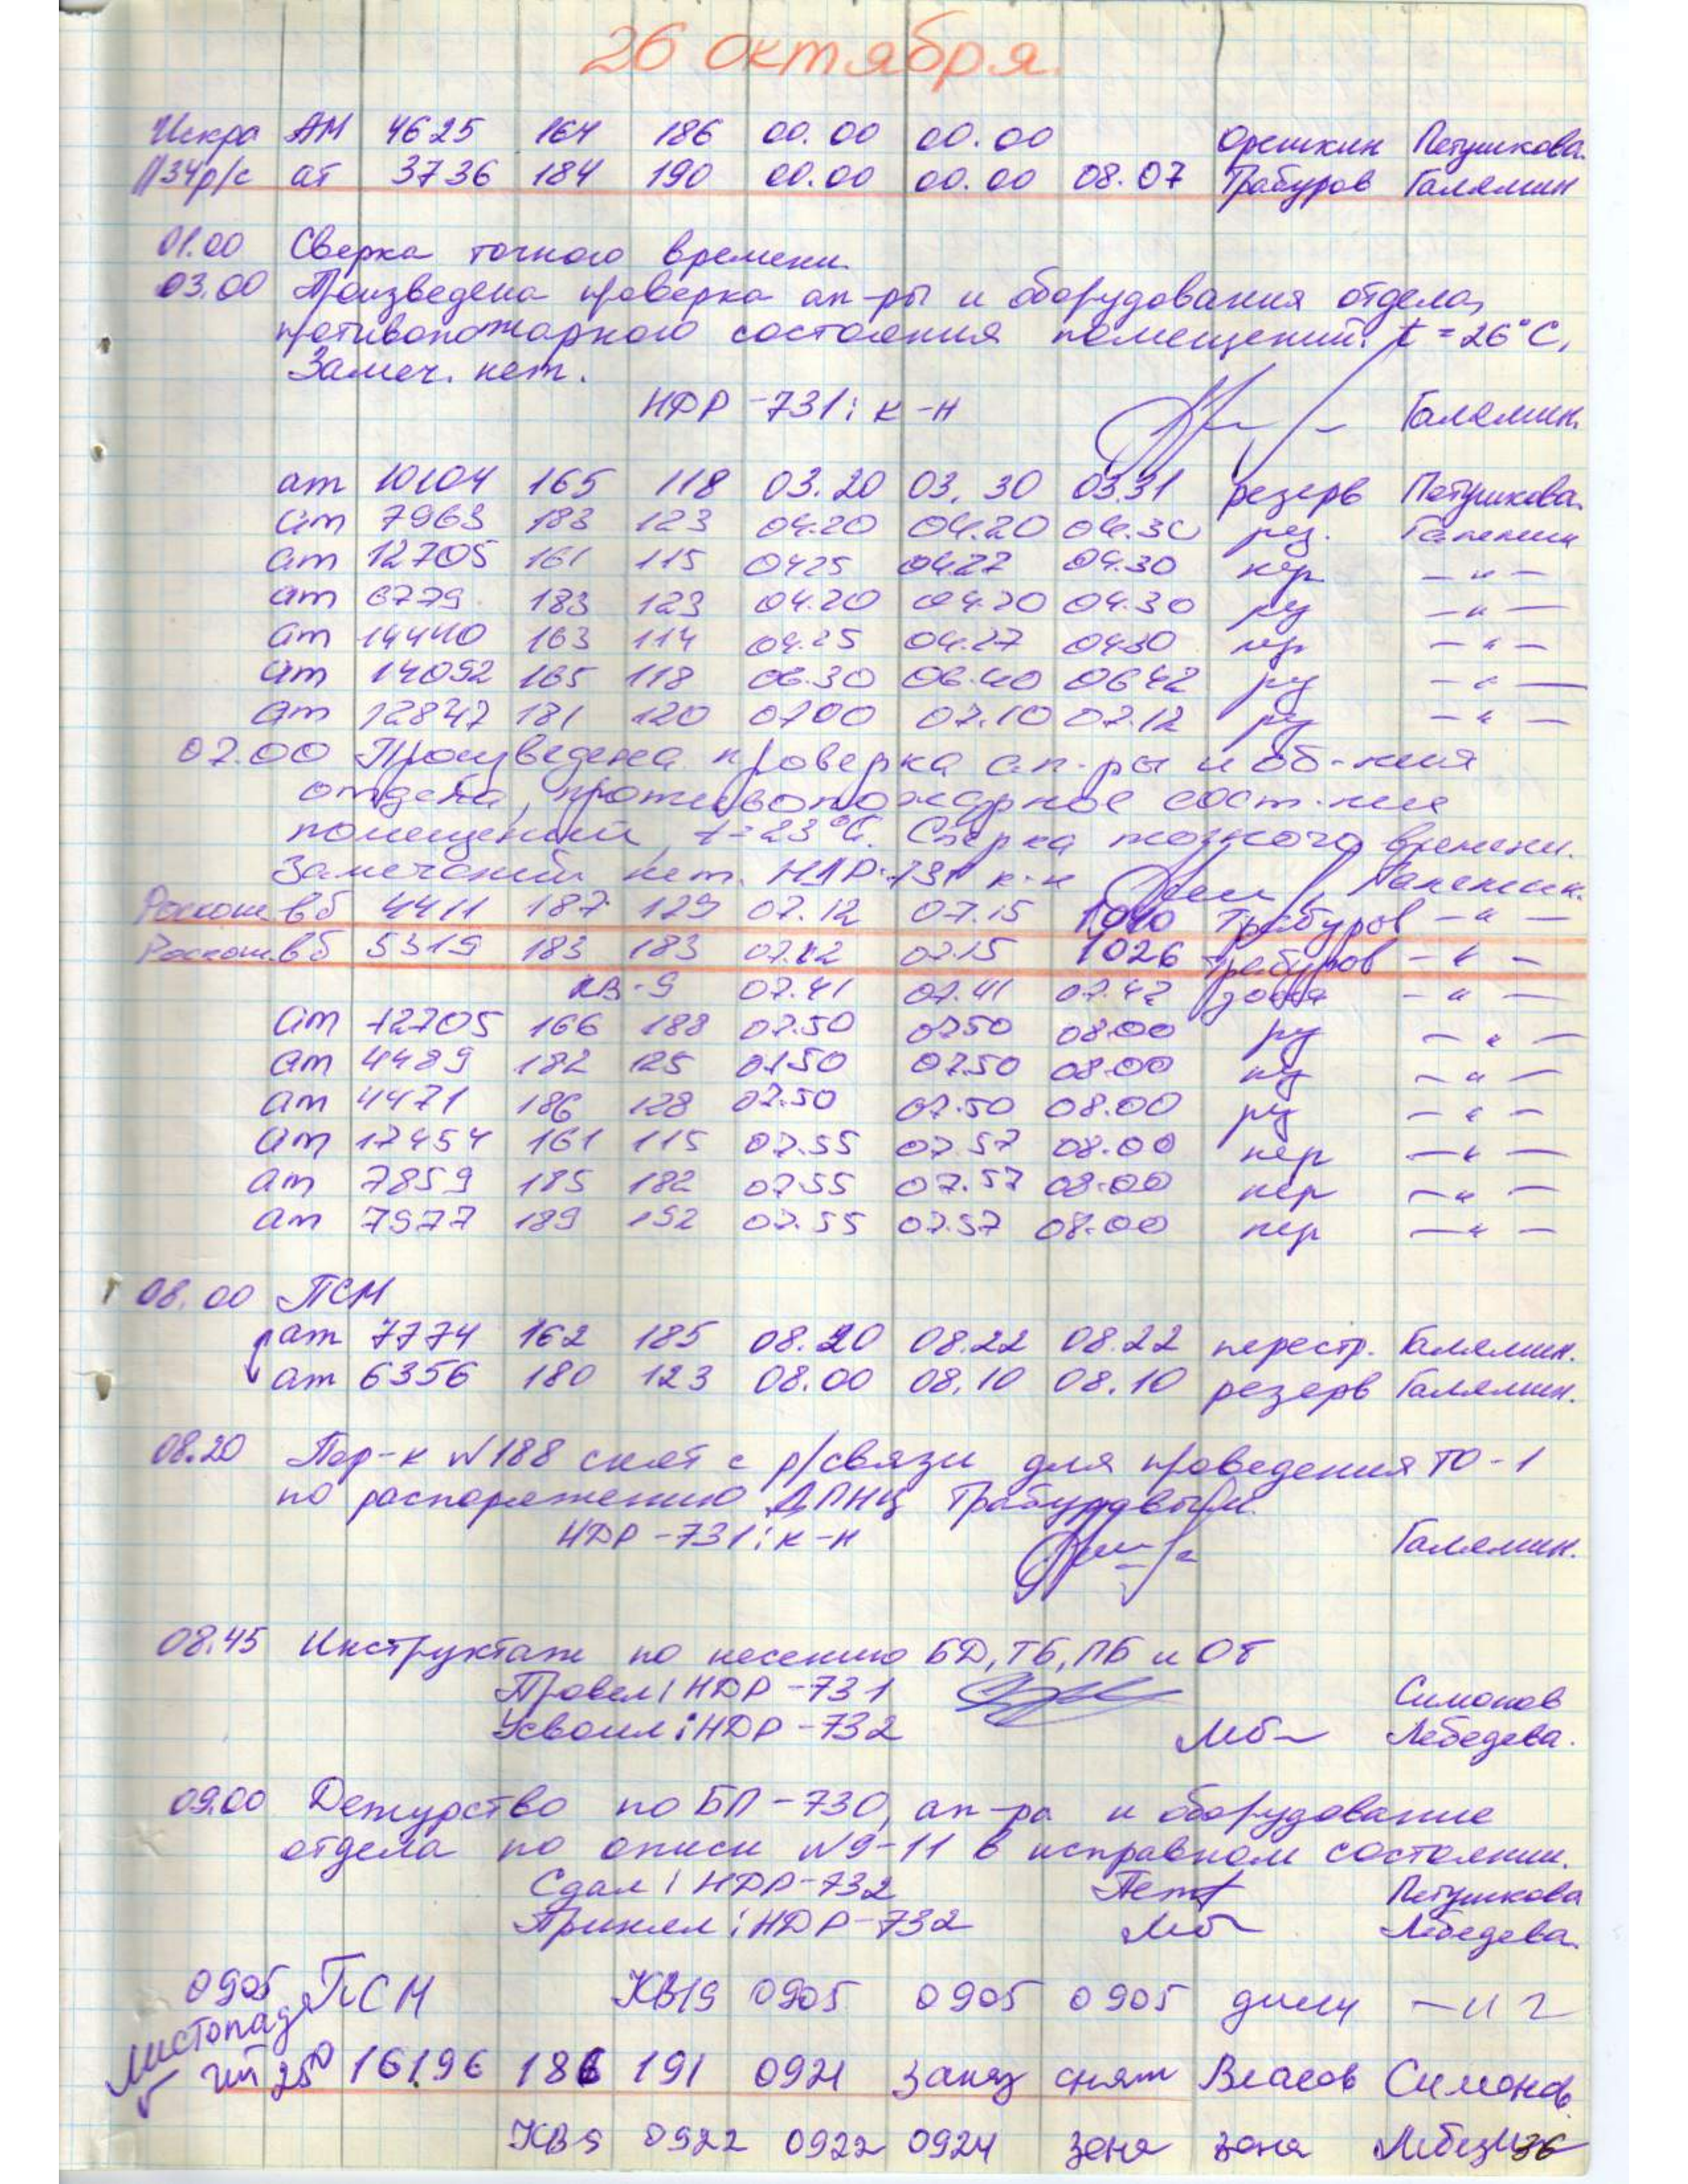 26 октября.
Искра АМ 4625 164 186 00.00 00.00 Орешкин Петушкова.
р/с ат 3736 184 190 00.00 00.00 08.07 Трабуров Галямин
01.00 Сверка точного времени.
03.00 Произведена проверка ап-ры и оборудования отдела,
противопожарного состояния помещений. t = 26°C,
Замеч. нет.
НДР-731: к-н Галямин.
ат 10104 165 118 03.20 03.30 03.31 резерв Петушкова.
ат 7963 183 123 04.20 04.20 04.30 рез. Галямин
ат 12705 161 115 0425 0427 04.30 пер -"-
ат 6779 183 123 04.20 04.20 04.30 рез -"-
ат 14440 163 114 04.25 04.27 0430 пер -"-
ат 14092 165 118 06.30 06.40 0642 рез -"-
ат 12847 181 120 0700 07.10 07.12 рез -"-
07.00 Произведена проверка ап-ры и об-ния
отдела, противопожарное сост-ние
помещений t=23°C. Сверка точного времени.
Замечаний нет. НДР-731 к-н Галямин.
вб 4411 187 129 07.12 07.15 1010 Трабуров -"-
вб 5319 183 183 07.12 07.15 1026 Трабуров -"-
КВ-9 07.41 07.41 07.42 зона -"-
ат 12705 166 188 07.50 0750 08.00 рез -"-
ат 4489 182 125 0750 0750 08.00 рез -"-
ат 4471 186 128 07.50 07.50 08.00 рез -"-
ат 17454 161 115 07.55 07.57 08.00 пер -"-
ат 7859 185 182 0755 07.57 08.00 пер -"-
ат 7977 189 192 07.55 07.57 08.00 пер -"-
08.00 ПСМ
ат 7774 162 185 08.20 08.22 08.22 перестр. Галямин.
ат 6356 180 123 08.00 08.10 08.10 резерв Галямин.
08.20 Пер-к №188 снят с р/связи для проведения ТО-1
по распоряжению ДПНЦ Трабуровым.
НДР-731: к-н Галямин.
08.45 Инструктаж по несению БД, ТБ, ПБ и ОТ
Провел: НДР-731 Симонов
Усвоил: НДР-732 Лебедева.
09.00 Дежурство по БП-730, ап-ра и оборудование
отдела по описи №9-11 в исправном состоянии.
Сдал: НДР-732 Петушкова
Принял: НДР-732 Лебедева.
0905 ПСМ КВ19 0905 0905 0905 -"-
Листопад
16196 186 191 0921 занят снят Власов Симонов.
КВ9 0922 0922 0924 зона зона
36